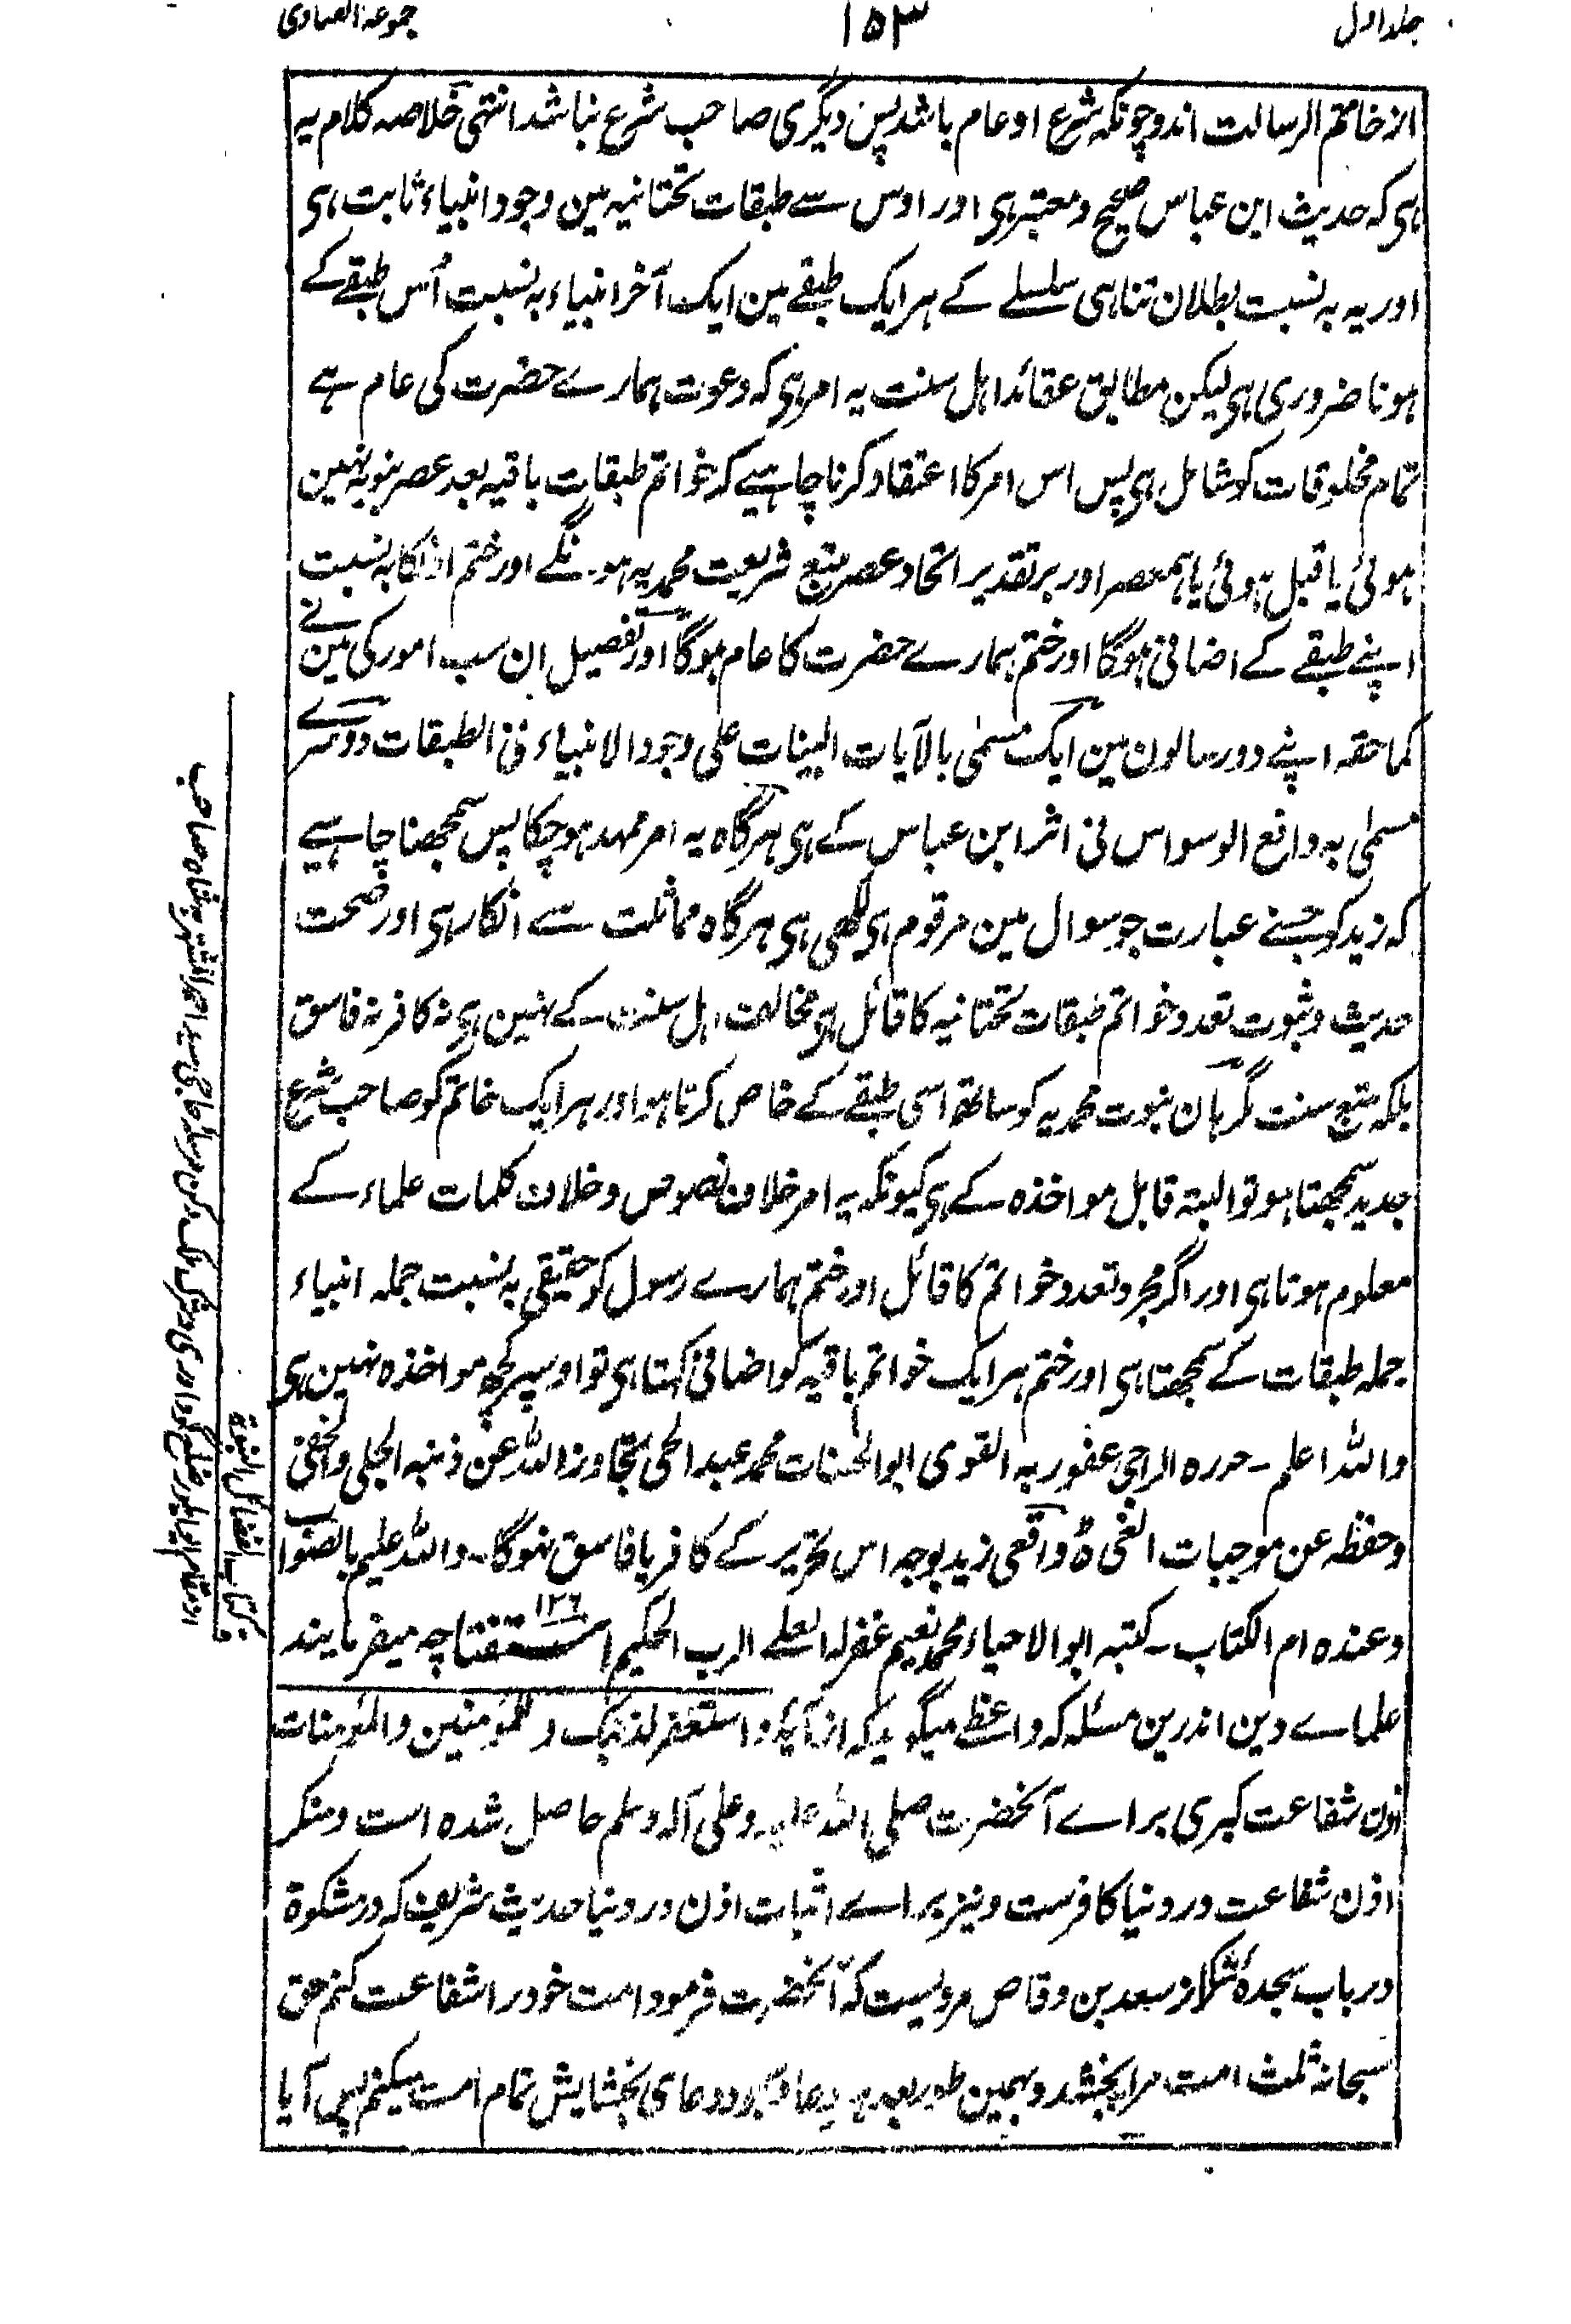 جلد اول
۱۵۳
مجموعۃ الفتاوی
از خاتم الرسالت اند و چونکہ شرع او عام باشد پس دیگری صاحب شرع نباشد انتہی خلاصہ کلام یہ
ہی کہ حدیث ابن عباس صحیح و معتبر ہی اور اوس سے طبقات تحتانیہ مین وجود انبیاء ثابت ہی
اور یہ بہ نسبت بطلان تناہی سلسلے کے ہر ایک طبقے مین ایک آخر انبیاء بہ نسبت اُس طبقے کے
ہونا ضروری ہی لیکن مطابق عقائد اہل سنت یہ امر ہی کہ دعوت ہمارے حضرت کی عام ہے
تمام مخلوقات کو شامل ہی پس اس امر کا اعتقاد کرنا چاہیے کہ خواتم طبقات باقیہ بعد عصر نبویہ نہین
ہوئی یا قبل ہوئی یا ہمعصر اور بر تقدیر اتحاد عصر متبع شریعت محمدیہ ہونگے اور ختم اونکا بہ نسبت
اپنے طبقے کے اضافی ہوگا اور ختم ہمارے حضرت کا عام ہوگا اور تفصیل ان سب امور کی مین نے
کما حقہ اپنے دو رسالون مین ایک مسمٰی بالآیات البینات علی وجود الانبیاء فی الطبقات دوسرے
مسمٰی بہ دافع الوسواس فی اثر ابن عباس کے ہی ہرگاہ یہ امر ممہد ہو چکا پس سمجھنا چاہیے
کہ زید کو جسنے عبارت جو سوال مین مرقوم ہی لکھی ہی ہرگاہ مماثلت سے انکار ہی اور صحت
حدیث و ثبوت تعدد خواتم طبقات تحتانیہ کا قائل ہی مخالف اہل سنت کے نہین ہی نہ کافر نہ فاسق
بلکہ متبع سنت گر ہان نبوت محمدیہ کو ساتھ اسی طبقے کے خاص کرتا ہو اور ہر ایک خاتم کو صاحب شرع
جدید سمجھتا ہو تو البتہ قابل مواخذہ کے ہی کیونکہ یہ امر خلاف نصوص و خلاف کلمات علماء کے
معلوم ہوتا ہی اور اگر مجرد تعدد خواتم کا قائل اور ختم ہمارے رسول کو حقیقی بہ نسبت جملہ انبیاء
جملہ طبقات کے سمجھتا ہی اور ختم ہر ایک خواتم باقیہ کو اضافی کہتا ہی تو اوسپر کچھ مواخذہ نہین ہی
واللہ اعلم ۔ حررہ الراجی عفو ربہ القوی ابو الحسنات محمد عبد الحی تجاوز اللہ عن ذنبہ الجلی والخفی
وحفظہ عن موجبات الغی ۵ واقعی زید بوجہ اس تحریر کے کافر یا فاسق نہوگا ۔ واللہ علیم بالصواب
وعندہ ام الکتاب ۔ کتبہ ابو الاحیاء محمد نعیم غفر لہ العلے الرب الحکیم استفتا ۱۲۶ چہ میفرمایند
علماے دین اندرین مسئلہ کہ واعظ میگوید کہ از آیۂ و استغفر لذنبک و للمؤمنین والمؤمنات
اذن شفاعت کبری براے آنحضرت صلی اللہ علیہ وعلی آلہ وسلم حاصل شدہ است و منکر
اذن شفاعت در دنیا کافرست و نیز براے اثبات اذن در دنیا حدیث شریف کہ در مشکوۃ
در باب سجدۂ شکر از سعد بن وقاص مرویست کہ آنحضرت فرمود امت خود را شفاعت کنم حق
سبحانہ ثلث امت مرا بخشد و بہمین طور بعد ہر دعا و سجود دعای بخشایش تمام امت میکنم پس آیا